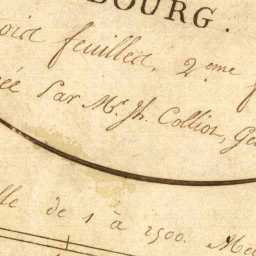 BOURG.
feuilles. 2.eme
Par Mr. Jh. Colliot, Gé
lle de 1 à 2500. Me